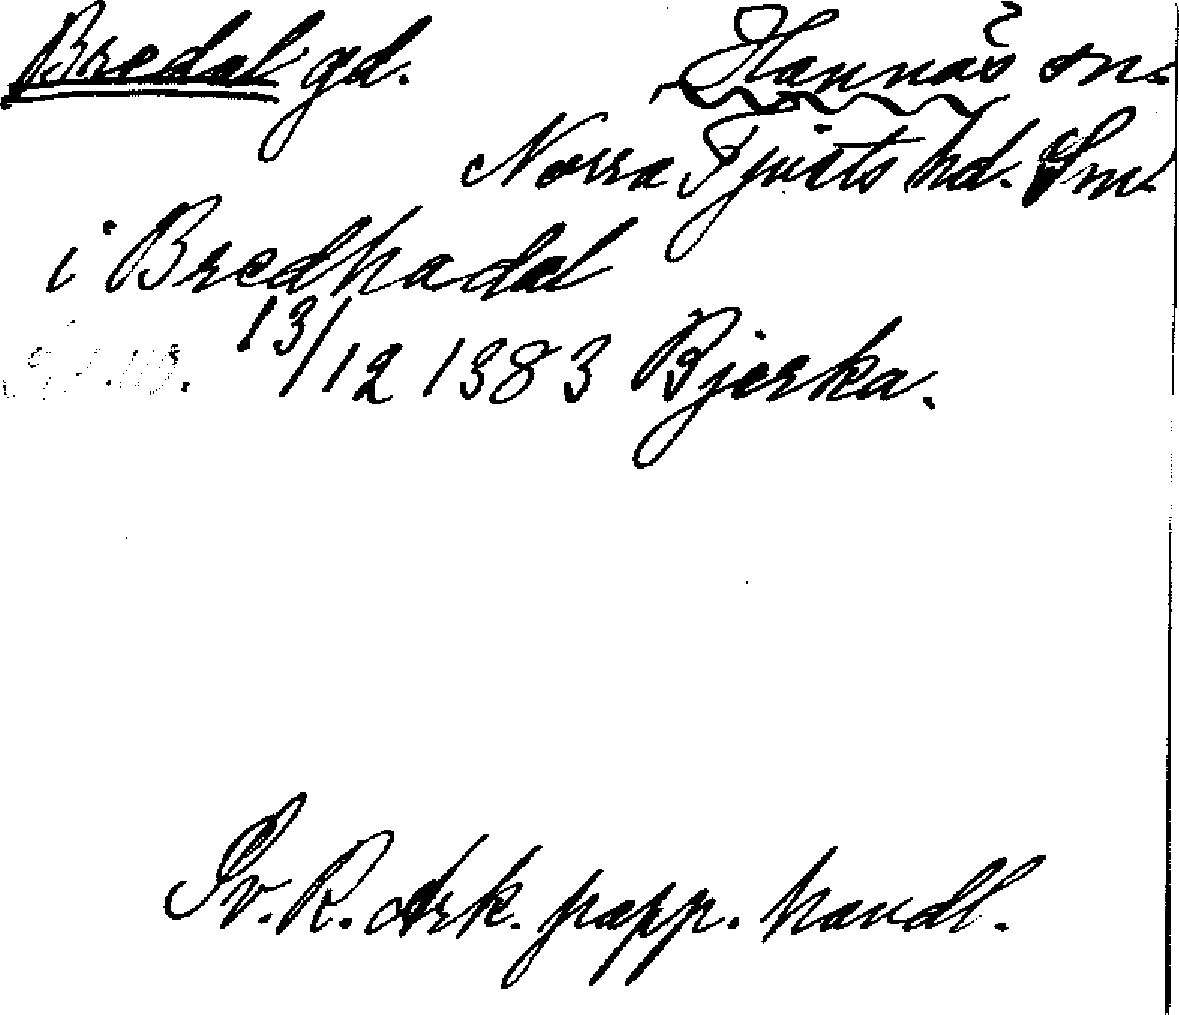 Bredal gd. Hannäs sn.
Norra Tjusts hd. Sm.
i Bredhadal
13/12 1383 Bjerka.
Sv. R. Ark. papp. handl.